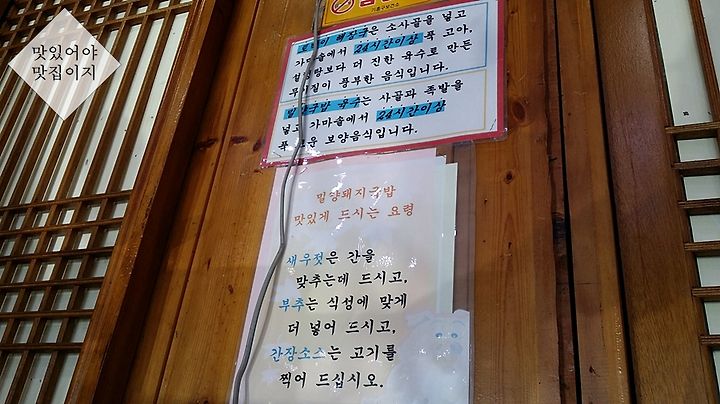 맛있어야
맛집이지
기흥구보건소
해장국은 소사골을 넣고
가마솥에서 24시간이상 푹 고아,
설렁탕보다 더 진한 육수로 만든
풍부한 음식입니다.
육수는 사골과 족발을
넣고 가마솥에서 24시간이상
푹 보양음식입니다.
밀양돼지국밥
맛있게 드시는 요령
새우젓은 간을
맞추는데 드시고,
부추는 식성에 맞게
더 넣어 드시고,
간장소스는 고기를
찍어 드십시오.